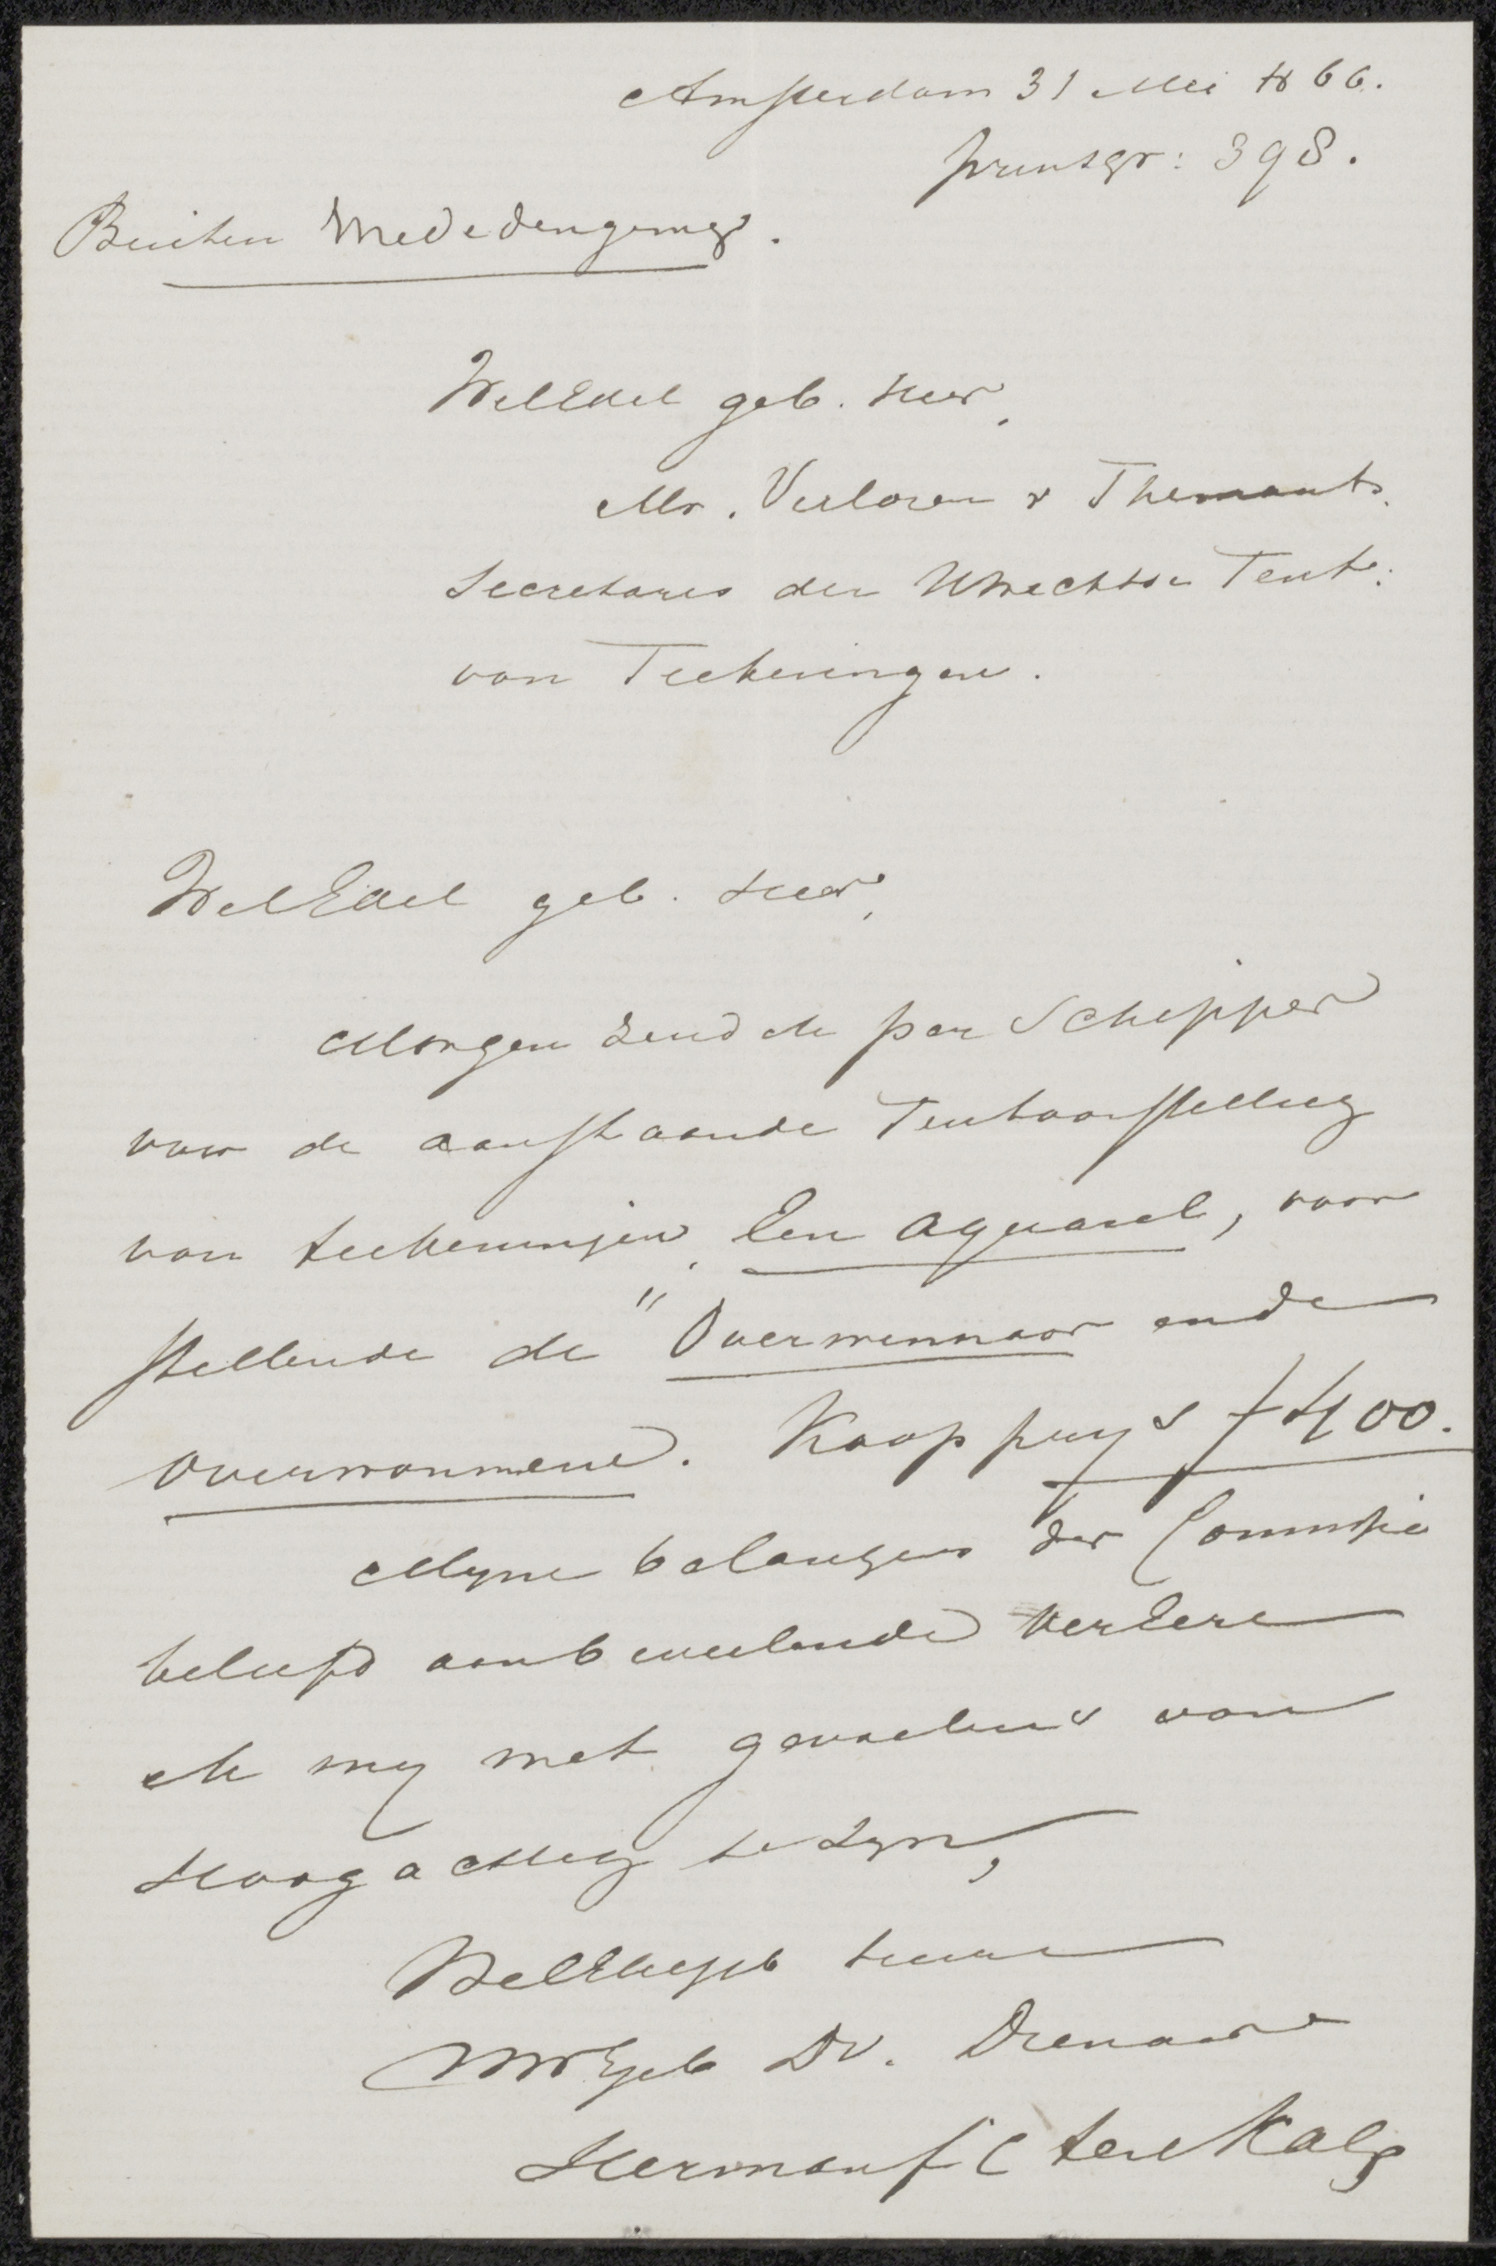 Amsterdam 31 Mei 1866.
prinsgr: 398.
Buiten Mededenging.
WelEdel geb. Heer,
Mr. Verloren v Themaat,
Secretaris der Utrechtse Tent:
van Teekeningen.
WelEdel geb. Heer,
Morgen zend ik per Schipper
voor de aanstaande Tentoonstelling
van teekeningen, Een aquarel, voor
stellende de "Overwinnaar ende
overwonnene. Koopprys f 400.
Myne belangens der Commissie
beleefd aanbeveelende verEere
ik my met gevoelens van
Hoogachting te zyn,
WelEdelgeb Heere
UWEgeb Dv. Dienaar
Herman F C ten Kate